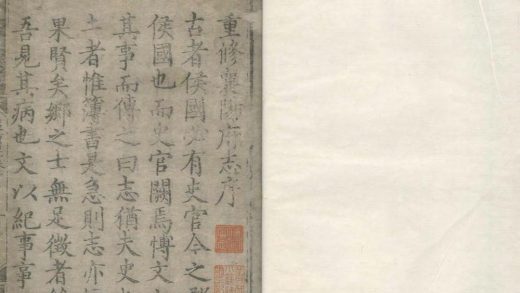 重修襄陽府志序
古者侯國必有史官今之
侯國也而史官闕焉愽文
其事而傳之曰志猶夫史
土者惟簿書是急則志亦
果賢矣鄉之士無足徵者
吾見其病也文以紀事事